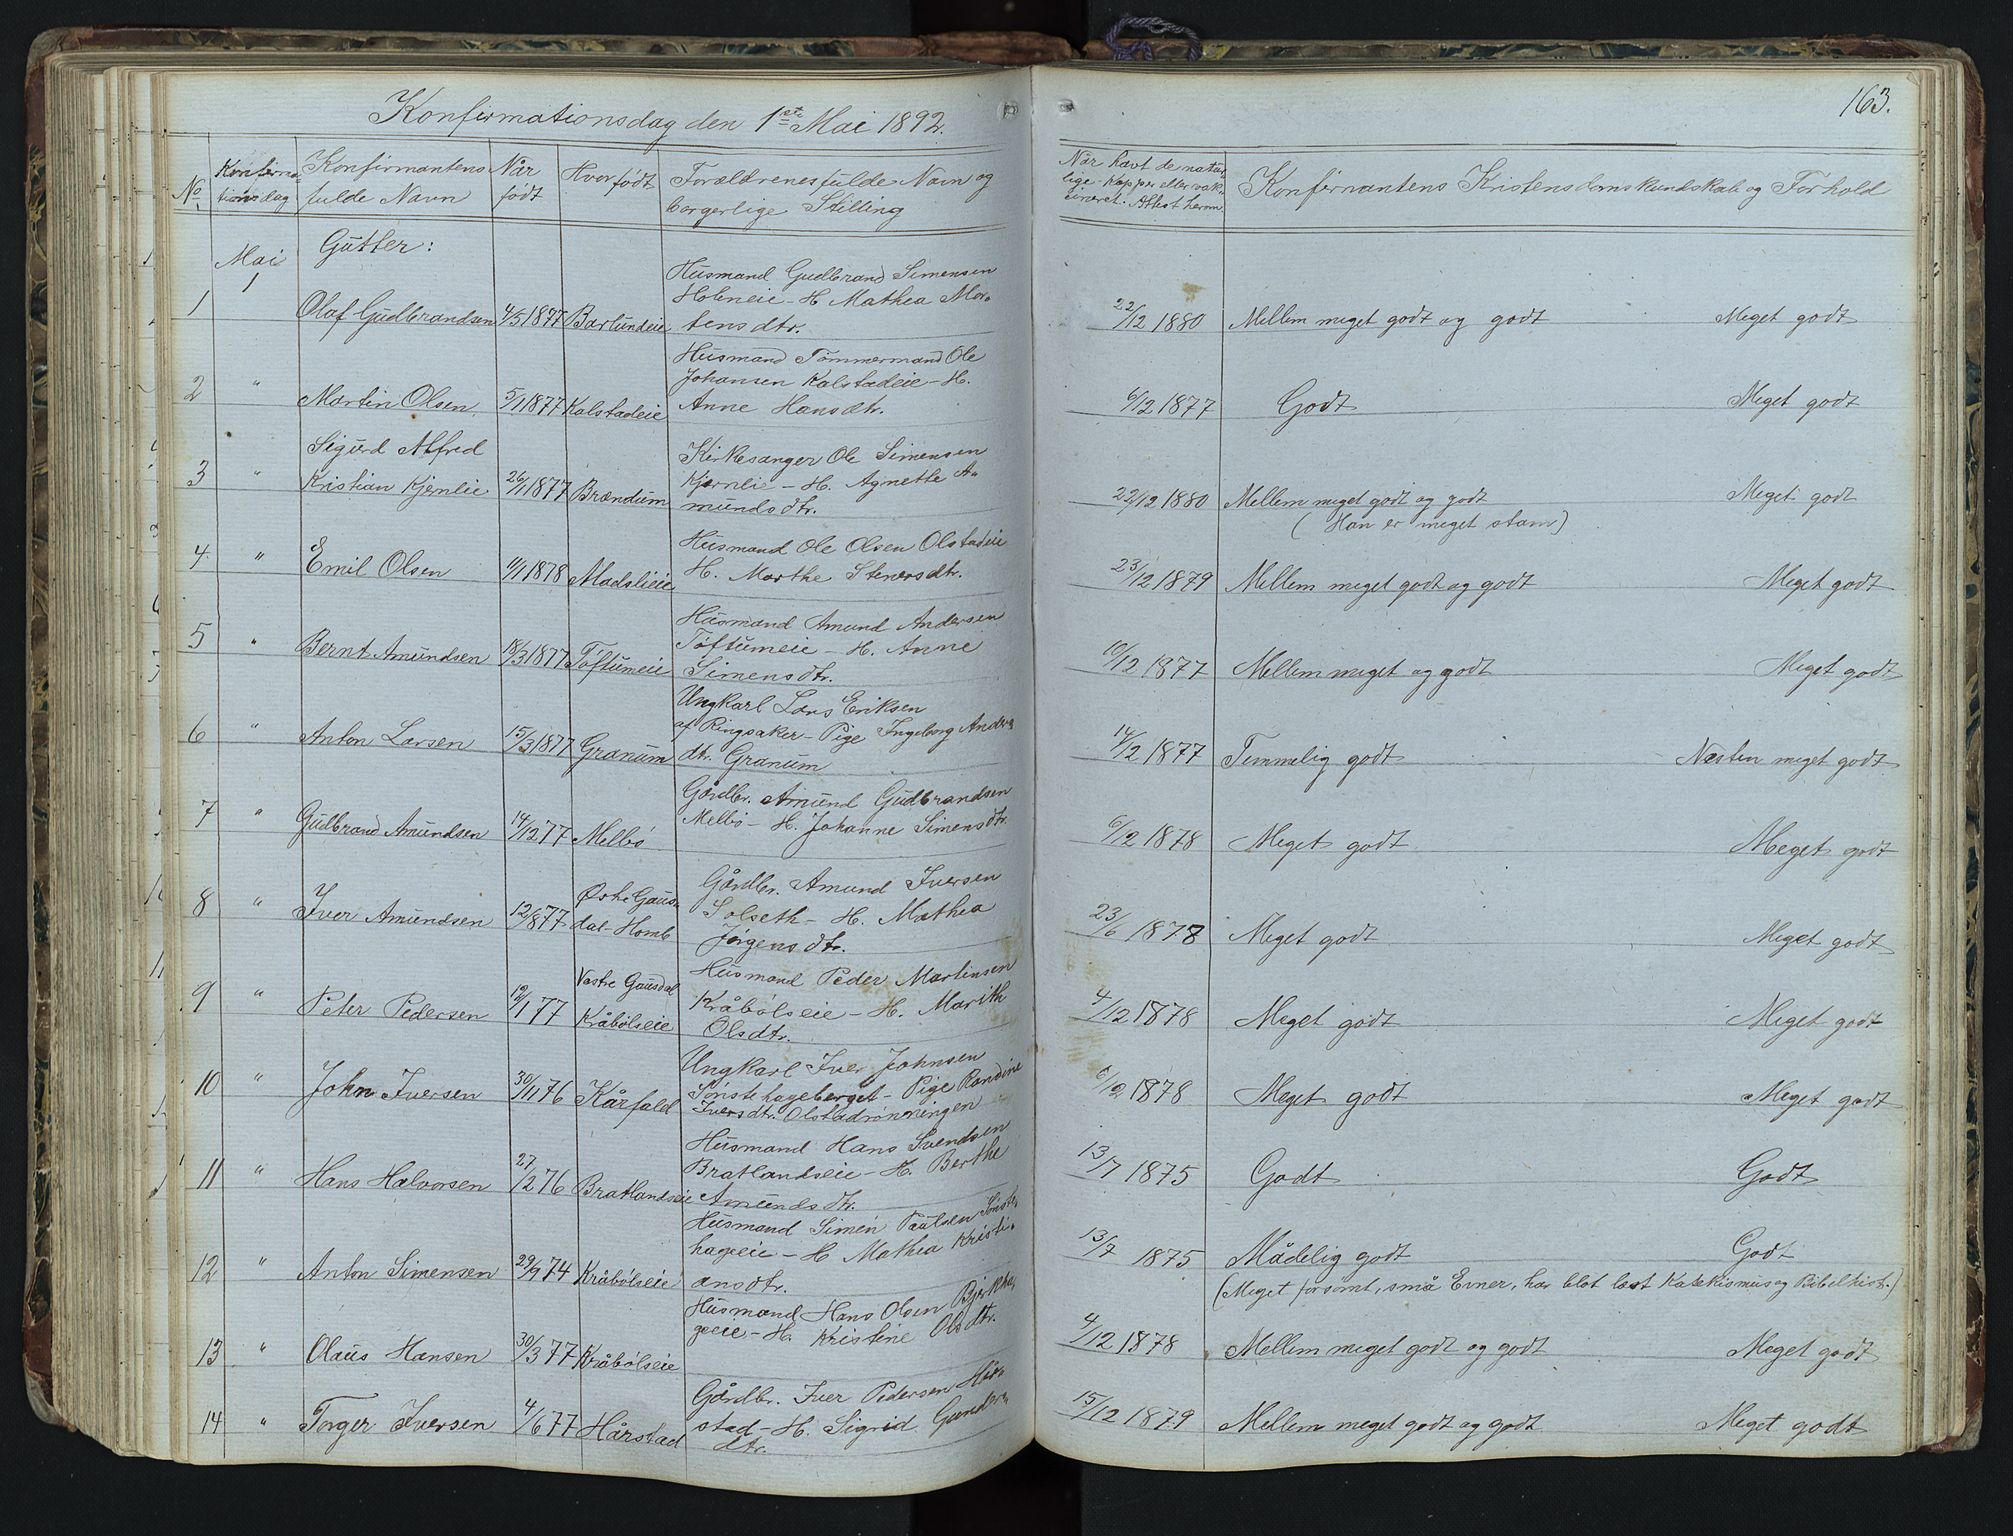 Konfirmationsdag den 1ste Mai 1892.
163.
No
Konfirma-
tionsdag
Konfirmantens
fulde Navn
Når
født
Hvor født
Forældrenes fulde Navn og
borgerlige Stilling
Når havt de natur-
lige Kopper eller vak-
cineret. Attest herom
Konfirmantens Kristendomskundskab og Forhold
Gutter:
Mai
1
Husmand Gudbrand Simensen
Holmeie - H. Mathea Mor-
1 Olaf Gudbrandsen 4/5 1877 Barlundeie tensdtr. 22/12 1880 Mellem meget godt og godt Meget godt
Husmand Tømmermand Ole
Johansen Kalstadeie - H.
2 " Martin Olsen 5/1 1877 Kalstadeie Anne Hansdtr. 6/12 1877 Godt Meget godt
Sigurd Alfred Kirkesanger Ole Simensen
3 " Kristian Kjernlie 26/1 1877 Brændum Kjernlie - H. Agnethe A- 22/12 1880 Mellem meget godt og godt Meget godt
mundsdtr. (Han er meget stam)
Husmand Ole Olsen Olstadeie
4 " Emil Olsen 11/1 1878 Madslieie H. Marthe Stenersdtr. 23/12 1879 Mellem meget godt og godt Meget godt
Husmand Amund Andersen
5 " Bernt Amundsen 18/3 1877 Toftumeie Toftumeie - H. Anne 10/12 1877 Mellem meget og godt Meget godt
Simensdtr.
Ungkarl Lars Eriksen
6 " Anton Larsen 15/3 1877 Granum af Ringsaker - Pige Ingeborg Anders 14/12 1877 Temmelig godt Næsten meget godt
dtr. Granum
Gårdbr. Amund Gudbrandsen
7 " Gudbrand Amundsen 14/12 77 Melbø Melbø - H. Johanne Simensdtr. 6/12 1878 Meget godt Meget godt
Østre Gaus- Gårdbr. Amund Iversen
8 " Iver Amundsen 12/8 77 dal - Homb Solseth - H. Mathea 23/6 1878 Meget godt Meget godt
Jørgensdtr.
Vestre Gausdal Husmand Peder Martinsen
9 " Peter Pedersen 12/1 77 Kråbølseie Kråbølseie - H. Marith 4/12 1878 Meget godt Meget godt
Olsdtr.
Ungkarl Iver Johnsen
10 " John Iversen 30/11 76 Kårfald Sønstehageberget - Pige Randine 6/12 1878 Meget godt Meget godt
Iversdtr. Olstadrønningen
Husmand Hans Svendsen
11 " Hans Halvorsen 27/2 76 Bratlandseie Bratlandseie - H. Berthe 13/7 1875 Godt Godt
Amundsdtr.
Husmand Simen Paulsen Sønste-
12 " Anton Simensen 29/9 74 Kråbølseie hageeie - H. Mathea Kristi- 13/7 1875 Mådelig godt Godt
ansdtr. (Meget forsømt, små Evner, har blot læst Katekismus og Bibelhist.)
Husmand Hans Olsen Bjerkha-
13 " Olaus Hansen 30/3 77 Kråbølseie geeie - H. Kristine Olsdtr. 4/12 1878 Mellem meget godt og godt Meget godt
Gårdbr. Iver Pedersen Hår-
14 " Torger Iversen 4/6 77 Hårstad stad - H. Sigrid Gunders 15/12 1879 Mellem meget godt og godt Meget godt
dtr.